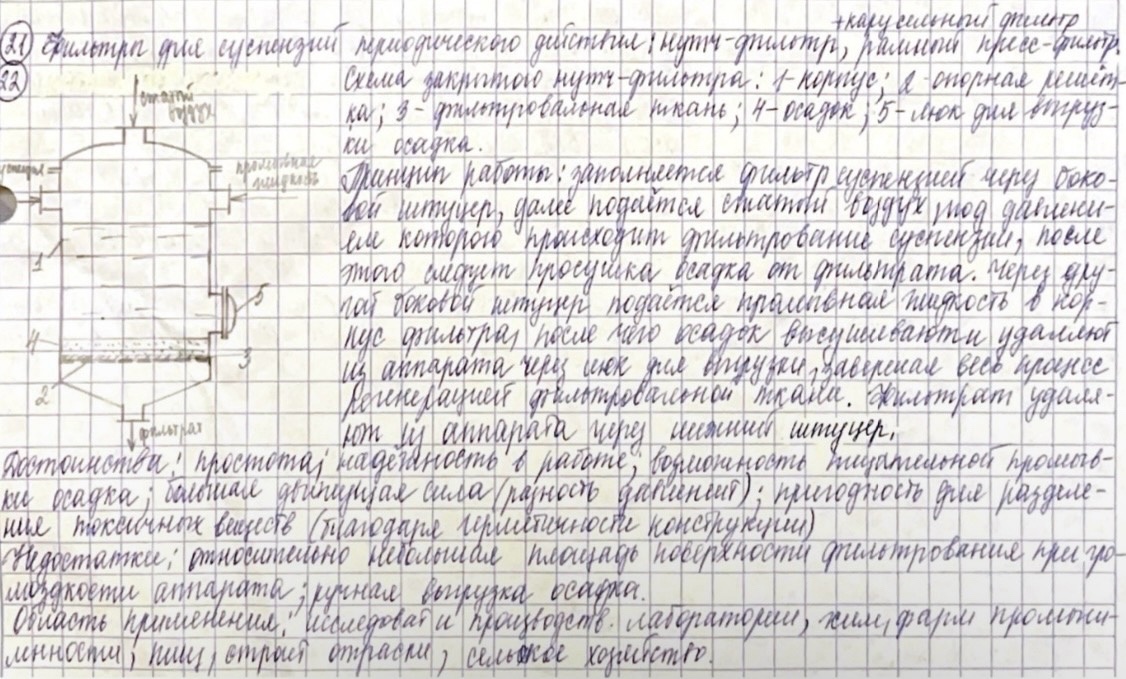 +карусельный фильтр
21 Фильтры для суспензий периодического действия: нутч-фильтр, рамный пресс-фильтр.
22
Схема закрытого нутч-фильтра: 1-корпус; 2-опорная решёт-
ка; 3-фильтровальная ткань; 4-осадок; 5-люк для выгруз-
ки осадка.
сжатый
воздух
промывная
жидкость
1
5
4
3
2
фильтрат
Принцип работы: заполняется фильтр суспензией через боко-
вой штуцер, далее подаётся сжатый воздух под давлени-
ем которого происходит фильтрование суспензии, после
этого следует просушка осадка от фильтрата. Через дру-
гой боковой штуцер подаётся промывная жидкость в кор-
пус фильтра, после чего осадок высушивают и удаляют
из аппарата через люк для выгрузки, завершая весь процесс
регенерацией фильтровальной ткани. Фильтрат удаля-
ют из аппарата через нижний штуцер.
Достоинства: простота; надежность в работе; возможность тщательной промыв-
ки осадка; большая движущая сила (разность давлений); пригодность для разделе-
ния токсичных веществ (благодаря герметичности конструкции)
Недостатки: относительно небольшая площадь поверхности фильтрования при гро-
моздкости аппарата; ручная выгрузка осадка.
Область применения: исследоват и производств. лаборатории, хим, фарм промыш-
ленности, пищ, строит отрасли, сельское хозяйство.